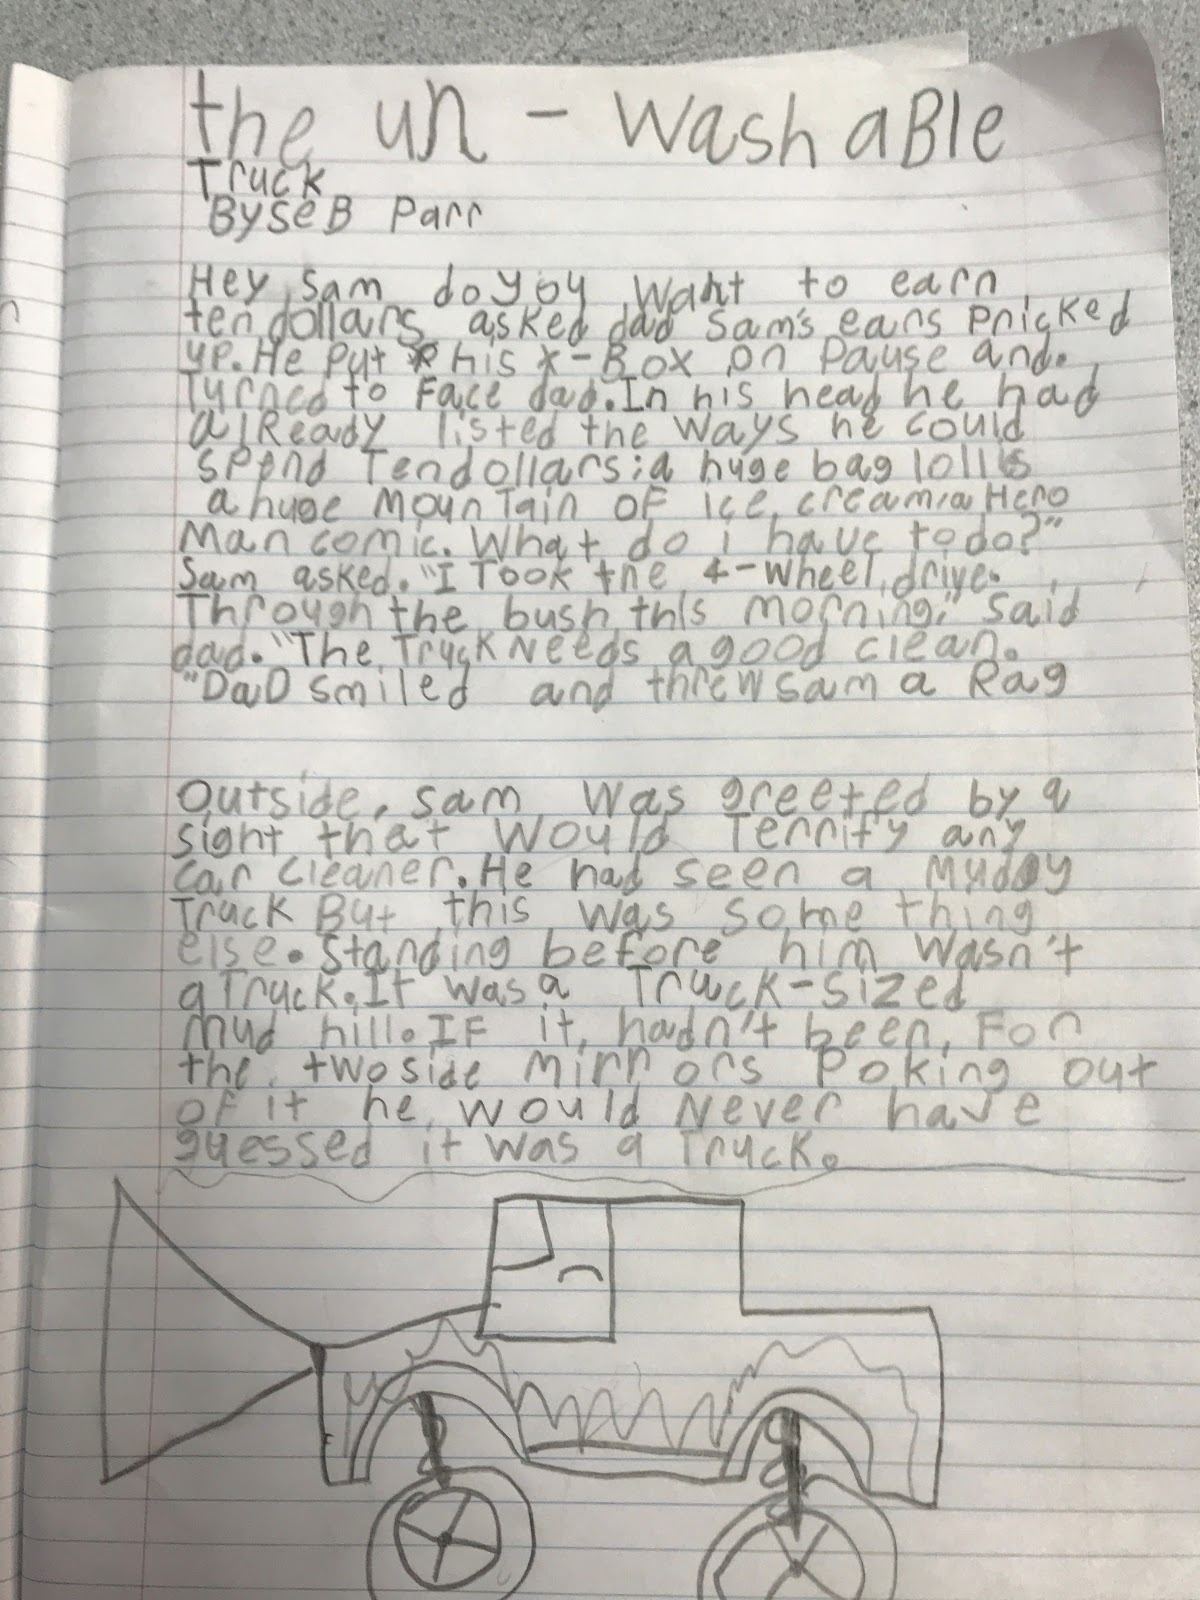 the un - washaBle
Truck
By seB Parr
Hey Sam do you want to earn
ten dollars asked dad Sam's ears pricked
up. He put his x-Box on pause and.
Turned to Face dad. In his head he had
alReady listed the ways he could
spend Ten dollars: a huge bag lollis
a huge mounTain of ice cream, a Hero
Man comic. What do i have to do?"
Sam asked. "I Took the 4-wheel drive.
Through the bush this morning," said
dad. "The Truck Needs a good clean.
"DaD smiled and threw sam a Rag
Outside, sam was greeted by a
sight that would Terrify any
car cleaner. He had seen a Muddy
Truck But this was some thing
else. Standing before him wasn't
a Truck. It was a Truck-sized
mud hill. IF it, hadn't been, For
the two side mirrors Poking out
of it he would Never have
guessed it was a Truck.